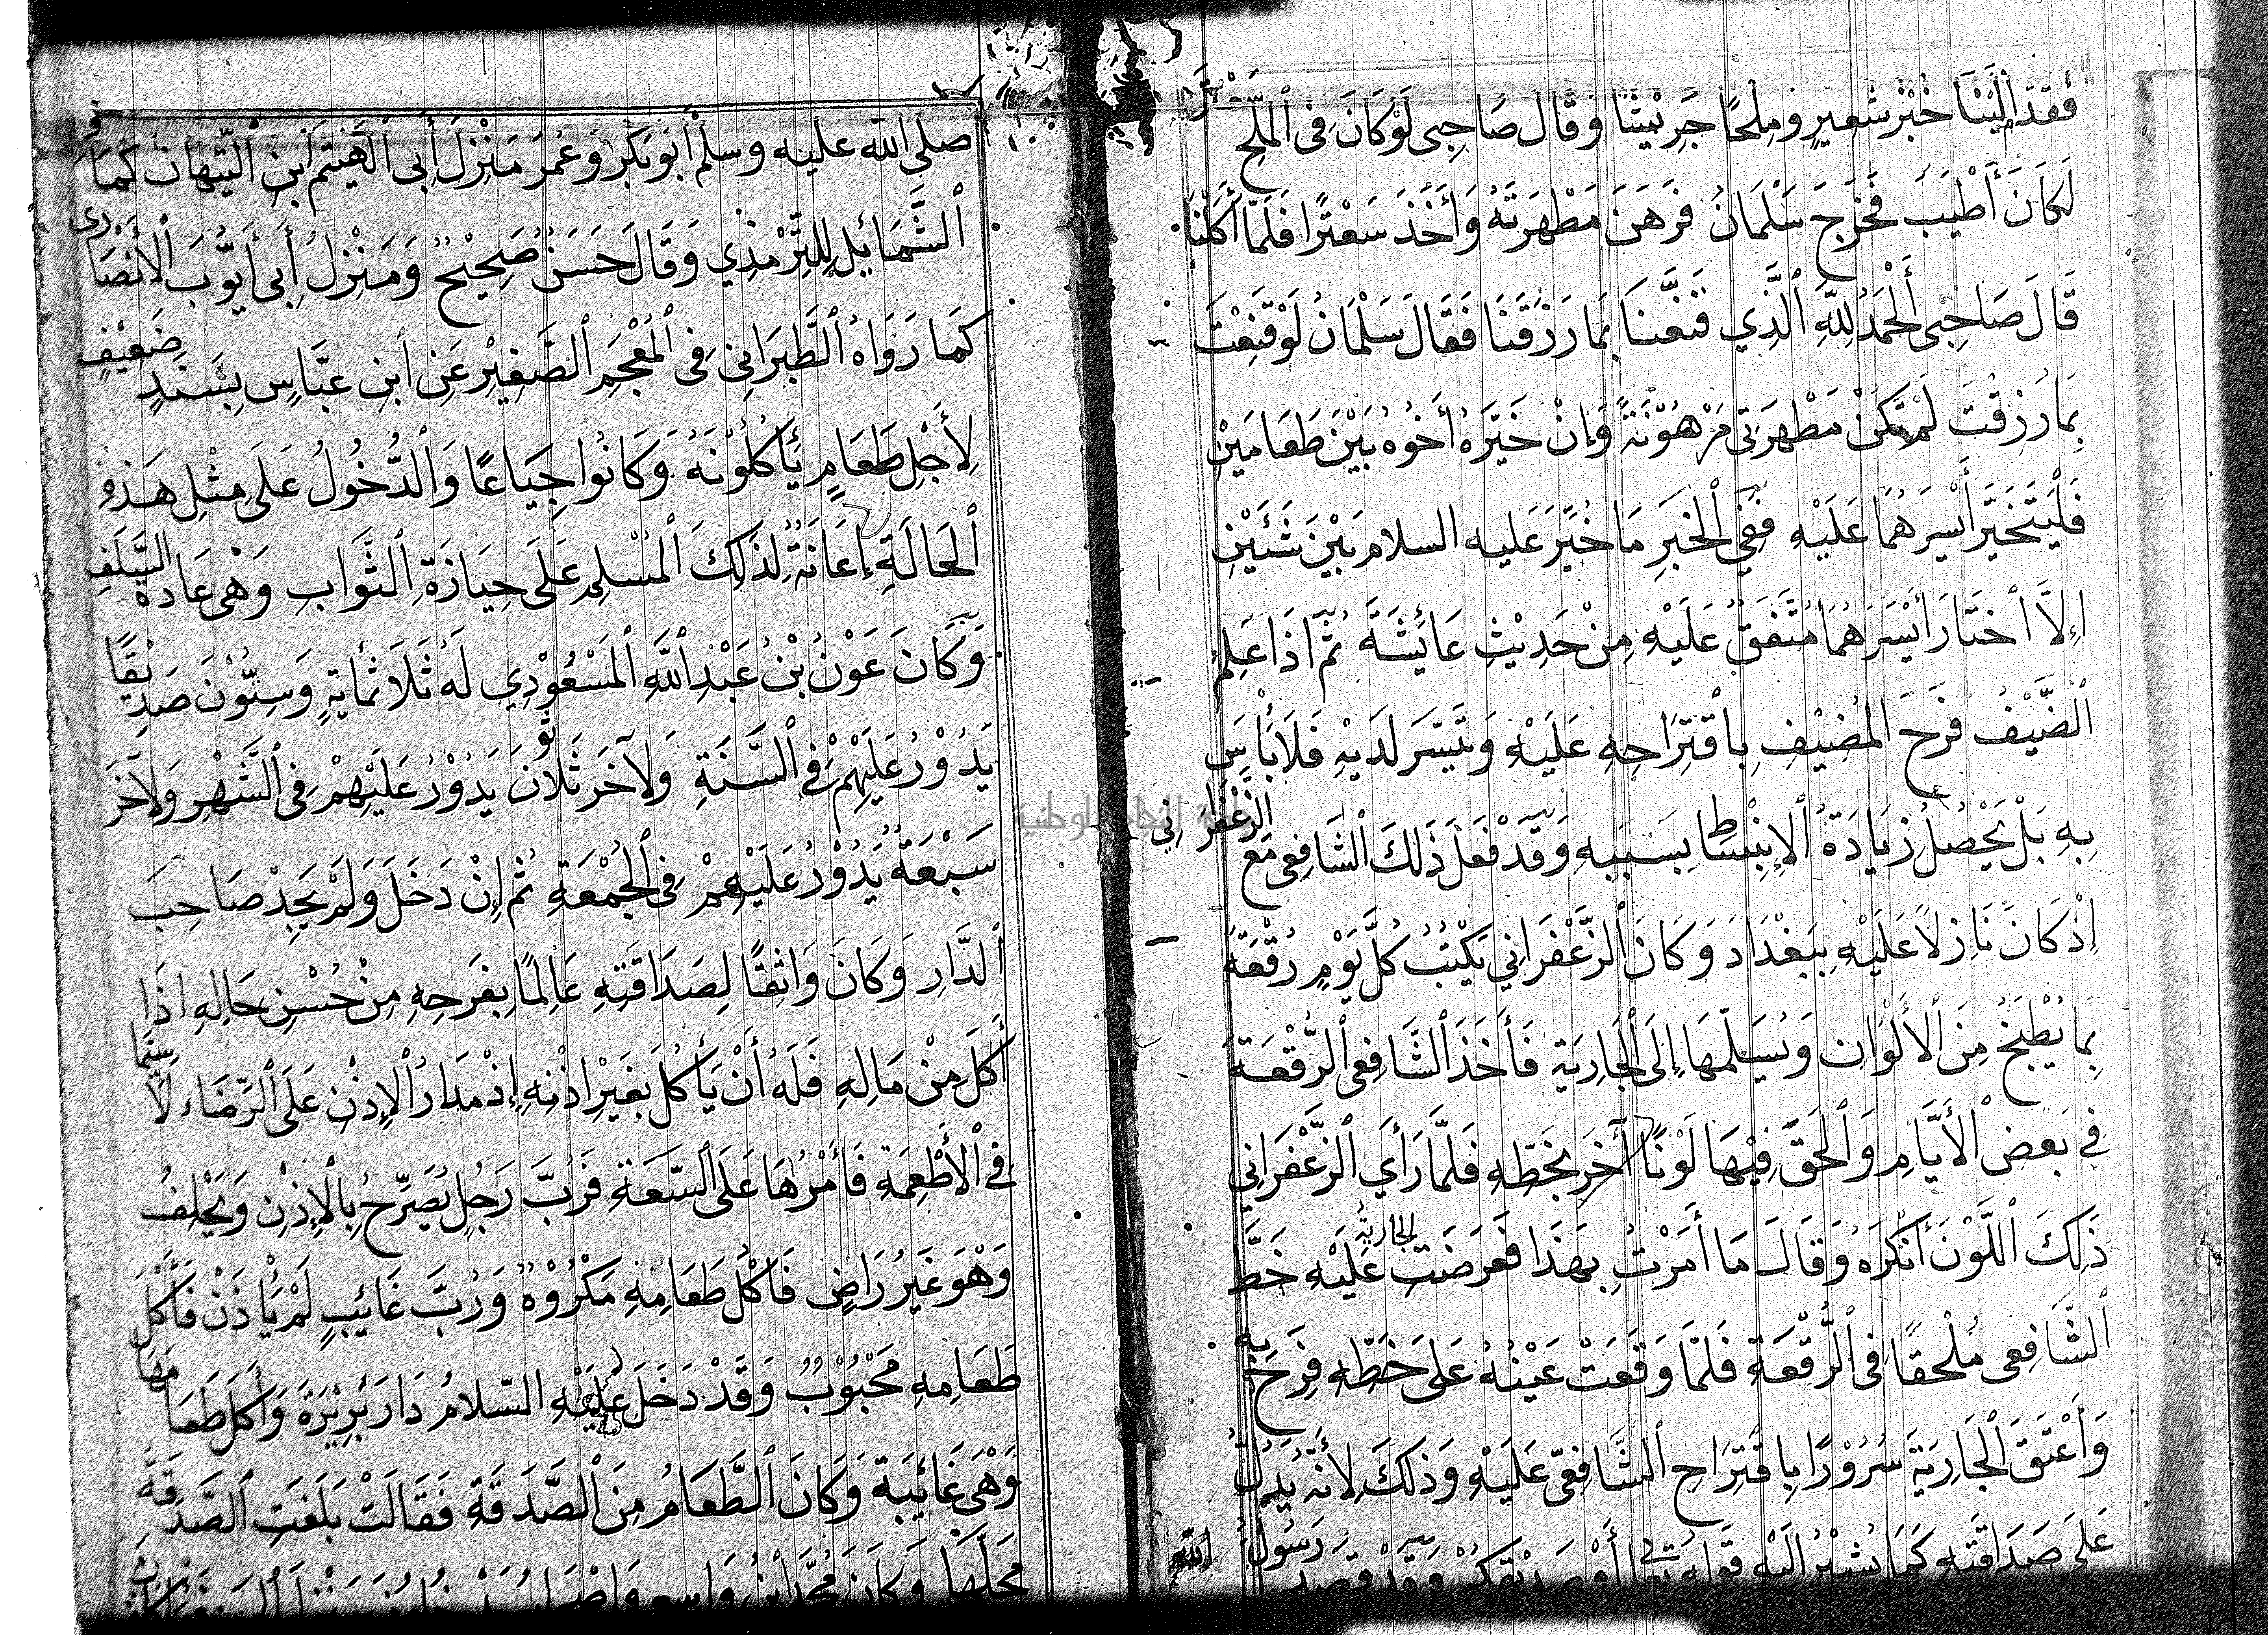 فقدم الينا خُبْزَ شَعِيرٍ وَمِلْحًا جَرِيْشًا وَقَالَ صَاحِبِى لَوْ كَانَ فِى الْمِلْحِ سَعْتَر
لَكَانَ أَطْيَبَ فَخَرَجَ سَلْمَانُ فَرَهَنَ مَطْهَرَتَهُ وَأَخَذَ سَعْتَرًا فَلَمَّا أَكَلْنَا
قَالَ صَاحِبِى أَلْحَمْدُ لِلّٰهِ الَّذِي قَنَّعَنَا بِمَا رَزَقَنَا فَقَالَ سَلْمَانُ لَوْ قَنِعْتَ
بِمَا رُزِقْتَ لَمْ تَكُنْ مَطْهَرَتِى مَرْهُوْنَةً وَإِنْ خَيَّرَهُ أَخُوهُ بَيْنَ طَعَامَيْنِ
فَلْيَتَخَيَّرْ أَيْسَرَهُمَا عَلَيْهِ فَفِي الْخَبَرِ مَا خُيِّرَ عَلَيه السلام بَيْنَ شَيْئَيْنِ
إِلَّا اخْتَارَ أَيْسَرَهُمَا مُتَّفَقٌ عَلَيْهِ مِنْ حَدِيْثِ عَائِشَةَ ثُمَّ اذَا عَلِمَ
الضَّيْفُ فَرَحَ الْمُضِيْفِ بِاقْتِرَاحِهِ عَلَيْهِ وَتَيَسَّرَ لَدَيْهِ فَلَا بَأْسَ
بِهِ بَلْ يَحْصُلُ زِيَادَةُ الْإِنْبِسَاطِ بِسَبَبِهِ وَقَدْ فَعَلَ ذَلِكَ الشَّافِعِى مَعَ الزَّعْفَرَانِي
إِذْ كَانَ نَازِلًا عَلَيْهِ بِبَغْدَادَ وَكَانَ الزَّعْفَرَانِي يَكْتُبُ كُلَّ يَوْمٍ رُقْعَةً
بِمَا يُطْبَخُ مِنَ الْأَلْوَانِ وَيُسَلِّمُهَا إِلَى الْجَارِيَةِ فَأَخَذَ الشَّافِعِى الرُّقْعَةَ
فِي بَعْضِ الْأَيَّامِ وَأَلْحَقَ فِيْهَا لَوْنًا آخَرَ بِخَطِّهِ فَلَمَّا رَأَي الزَّعْفَرَانِي
ذَلِكَ اللَّوْنَ أَنْكَرَهُ وَقَالَ مَا أَمَرْتُ بِهَذَا فَعَرَضَتِ الجارية عَلَيْهِ خَطَّ
الشَّافِعِى مُلْحَقًا فِى الرُّقْعَةِ فَلَمَّا وَقَعَتْ عَيْنُهُ عَلَى خَطِّهِ فَرِحَ بِهِ
وَأَعْتَقَ الْجَارِيَةَ سُرُوْرًا بِاقْتِرَاحِ الشَّافِعِيِّ عَلَيْهِ وَذَلِكَ لِأَنَّهُ يَدُلُّ
عَلَى صَدَاقَتِهِ كَمَا يُشِيْرُ الَيْهِ قَوْلُهُ تعالى أَوْ صَدِيْقِكُمْ وَقَدْ قَصَدَ رَسُولُ الله
صلى الله عليه وسلم أَبُوْ بَكْرٍ وَعُمَرَ مَنْزِلَ أَبِى الْهَيْثَمِ ابْنِ التَّيِّهَانِ كَمَا فِي
الشَّمَائِلِ لِلتِّرْمِذِي وَقَالَ حَسَنٌ صَحِيْحٌ وَمَنْزِلُ أَبِى أَيُّوْبَ الْأَنْصَارِى
كَمَا رَوَاهُ الطَّبَرَانِى فِى الْمُعْجَمِ الصَّغِيْرِ عَنِ ابْنِ عَبَّاسٍ بِسَنَدٍ ضَعِيْفٍ
لِأَجْلِ طَعَامٍ يَأْكُلُوْنَهُ وَكَانُوا جِيَاعًا وَالدُّخُولُ عَلَى مِثْلِ هَذِهِ
الْحَالَةِ إِعَانَةٌ لِذَلِكَ الْمُسْلِمِ عَلَى حِيَازَةِ الثَّوَابِ وَهِى عَادَةُ السَّلَفِ
وَكَانَ عَوْنُ بْنُ عَبْدِ اللّٰهِ الْمَسْعُوْدِي لَهُ ثَلَاثُمِائَةٍ وَسِتُّوْنَ صَدِيْقًا
يَدُوْرُ عَلَيْهِمْ فِي السَّنَةِ وَلِآخَرَ ثَلَاثُوْنَ يَدُوْرُ عَلَيْهِمْ فِى الشَّهْرِ وَلِآخَرَ
سَبْعَةٌ يَدُوْرُ عَلَيْهِمْ فِى الْجُمْعَةِ ثُمَّ إِنْ دَخَلَ وَلَمْ يَجِدْ صَاحِبَ
الدَّارِ وَكَانَ وَاثِقًا لِصَدَاقَتِهِ عَالِمًا بِفَرَحِهِ مِنْ حُسْنِ حَالِهِ اذَا
أَكَلَ مِنْ مَالِهِ فَلَهُ أَنْ يَأْكُلَ بِغَيْرِ اذْنِهِ إِذْ مَدَارُ الْإِذْنِ عَلَى الرِّضَاء لَا سِيَّمَا
فِي الْأَطْعِمَةِ فَأَمْرُهَا عَلَى السَّعَةِ فَرُبَّ رَجُلٍ يُصَرِّحُ بِالْإِذْنِ وَيَحْلِفُ
وَهُوَ غَيْرُ رَاضٍ فَاكْلُ طَعَامِهِ مَكْرُوْهٌ وَرُبَّ غَائِبٍ لَمْ يَأْذَنْ فَأَكْلُ
طَعَامِهِ مَحْبُوْبٌ وَقَدْ دَخَلَ عَلَيْهِ السّلامُ دَارَ بَرِيْرَةَ وَأَكَلَ طَعَامَهَا
وَهْىَ غَائِبَة وَكَانَ الطَّعَامُ مِنَ الصَّدَقَةِ فَقَالَتْ بَلَغَتِ الصَّدَقَةُ
مَحَلَّهَا وَكَانَ مُحَمَّدُ ابْنُ وَاسِعٍ وَاصْحَابُهُ